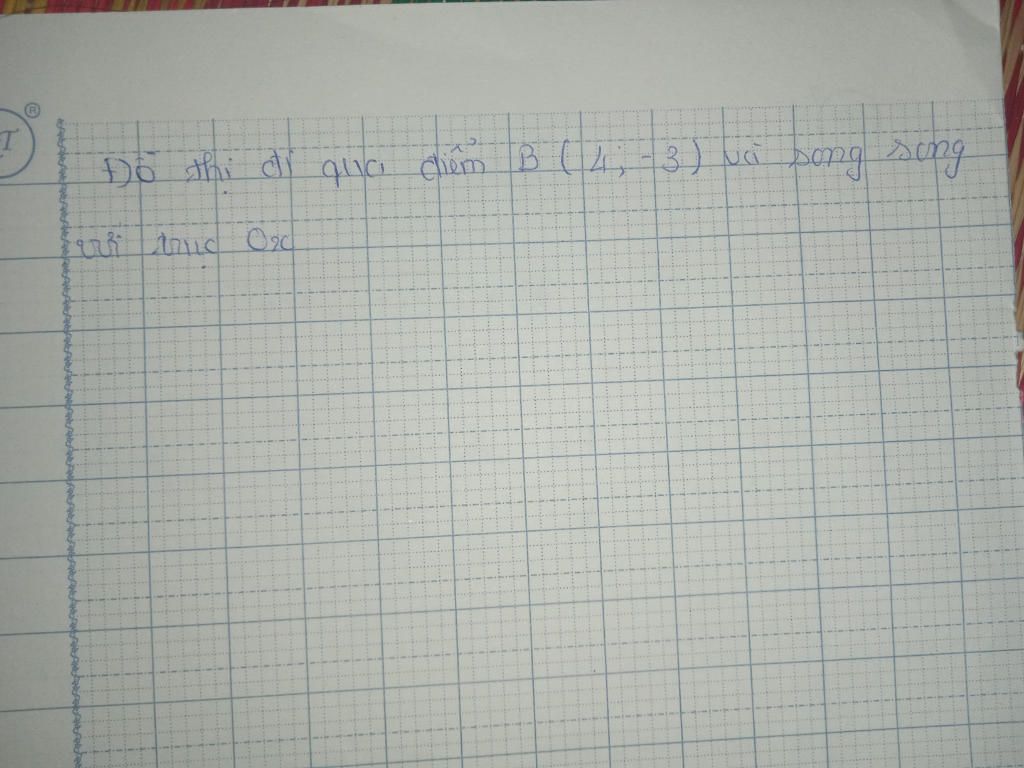 Đồ thị đi qua điểm B ( 4 ; -3 ) và song song
với trục Ox